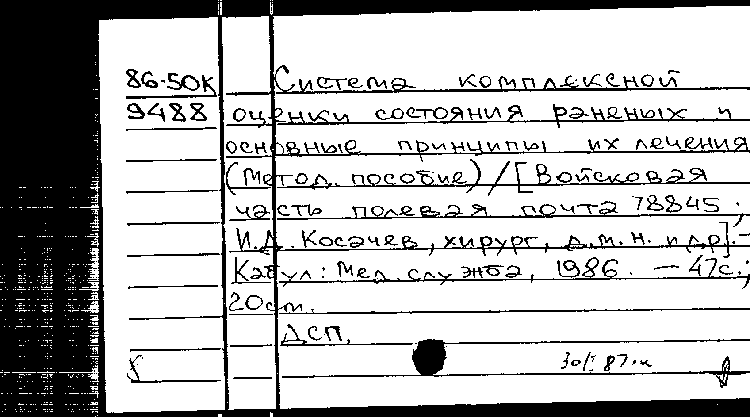 86-50К Система комплексной
9488 оценки состояния раненых и
основные принципы их лечения
(Метод. пособие) / [Войсковая
часть полевая почта 78845;
И.Д. Косачев, хирург, д.м.н. и др.]. –
Кабул: Мед. служба, 1986. – 47с.;
20см.
ДСП.